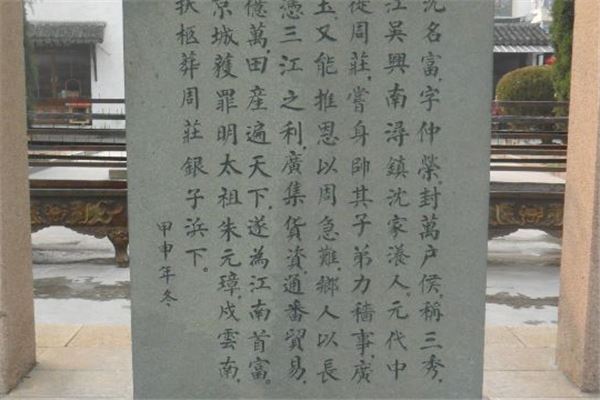 沈名富,字仲榮,封萬户侯,稱三秀,
江吳興南潯鎮沈家漾人。元代中
從周莊,嘗身帥其子弟力穡事,廣
玉又能推恩以周急難,鄉人以長
憑三江之利,廣集貨資,通番貿易,
億萬,田産遍天下,遂為江南首富。
京城獲罪明太祖朱元璋,戍雲南,
扶柩葬周莊銀子浜下。
甲申年冬